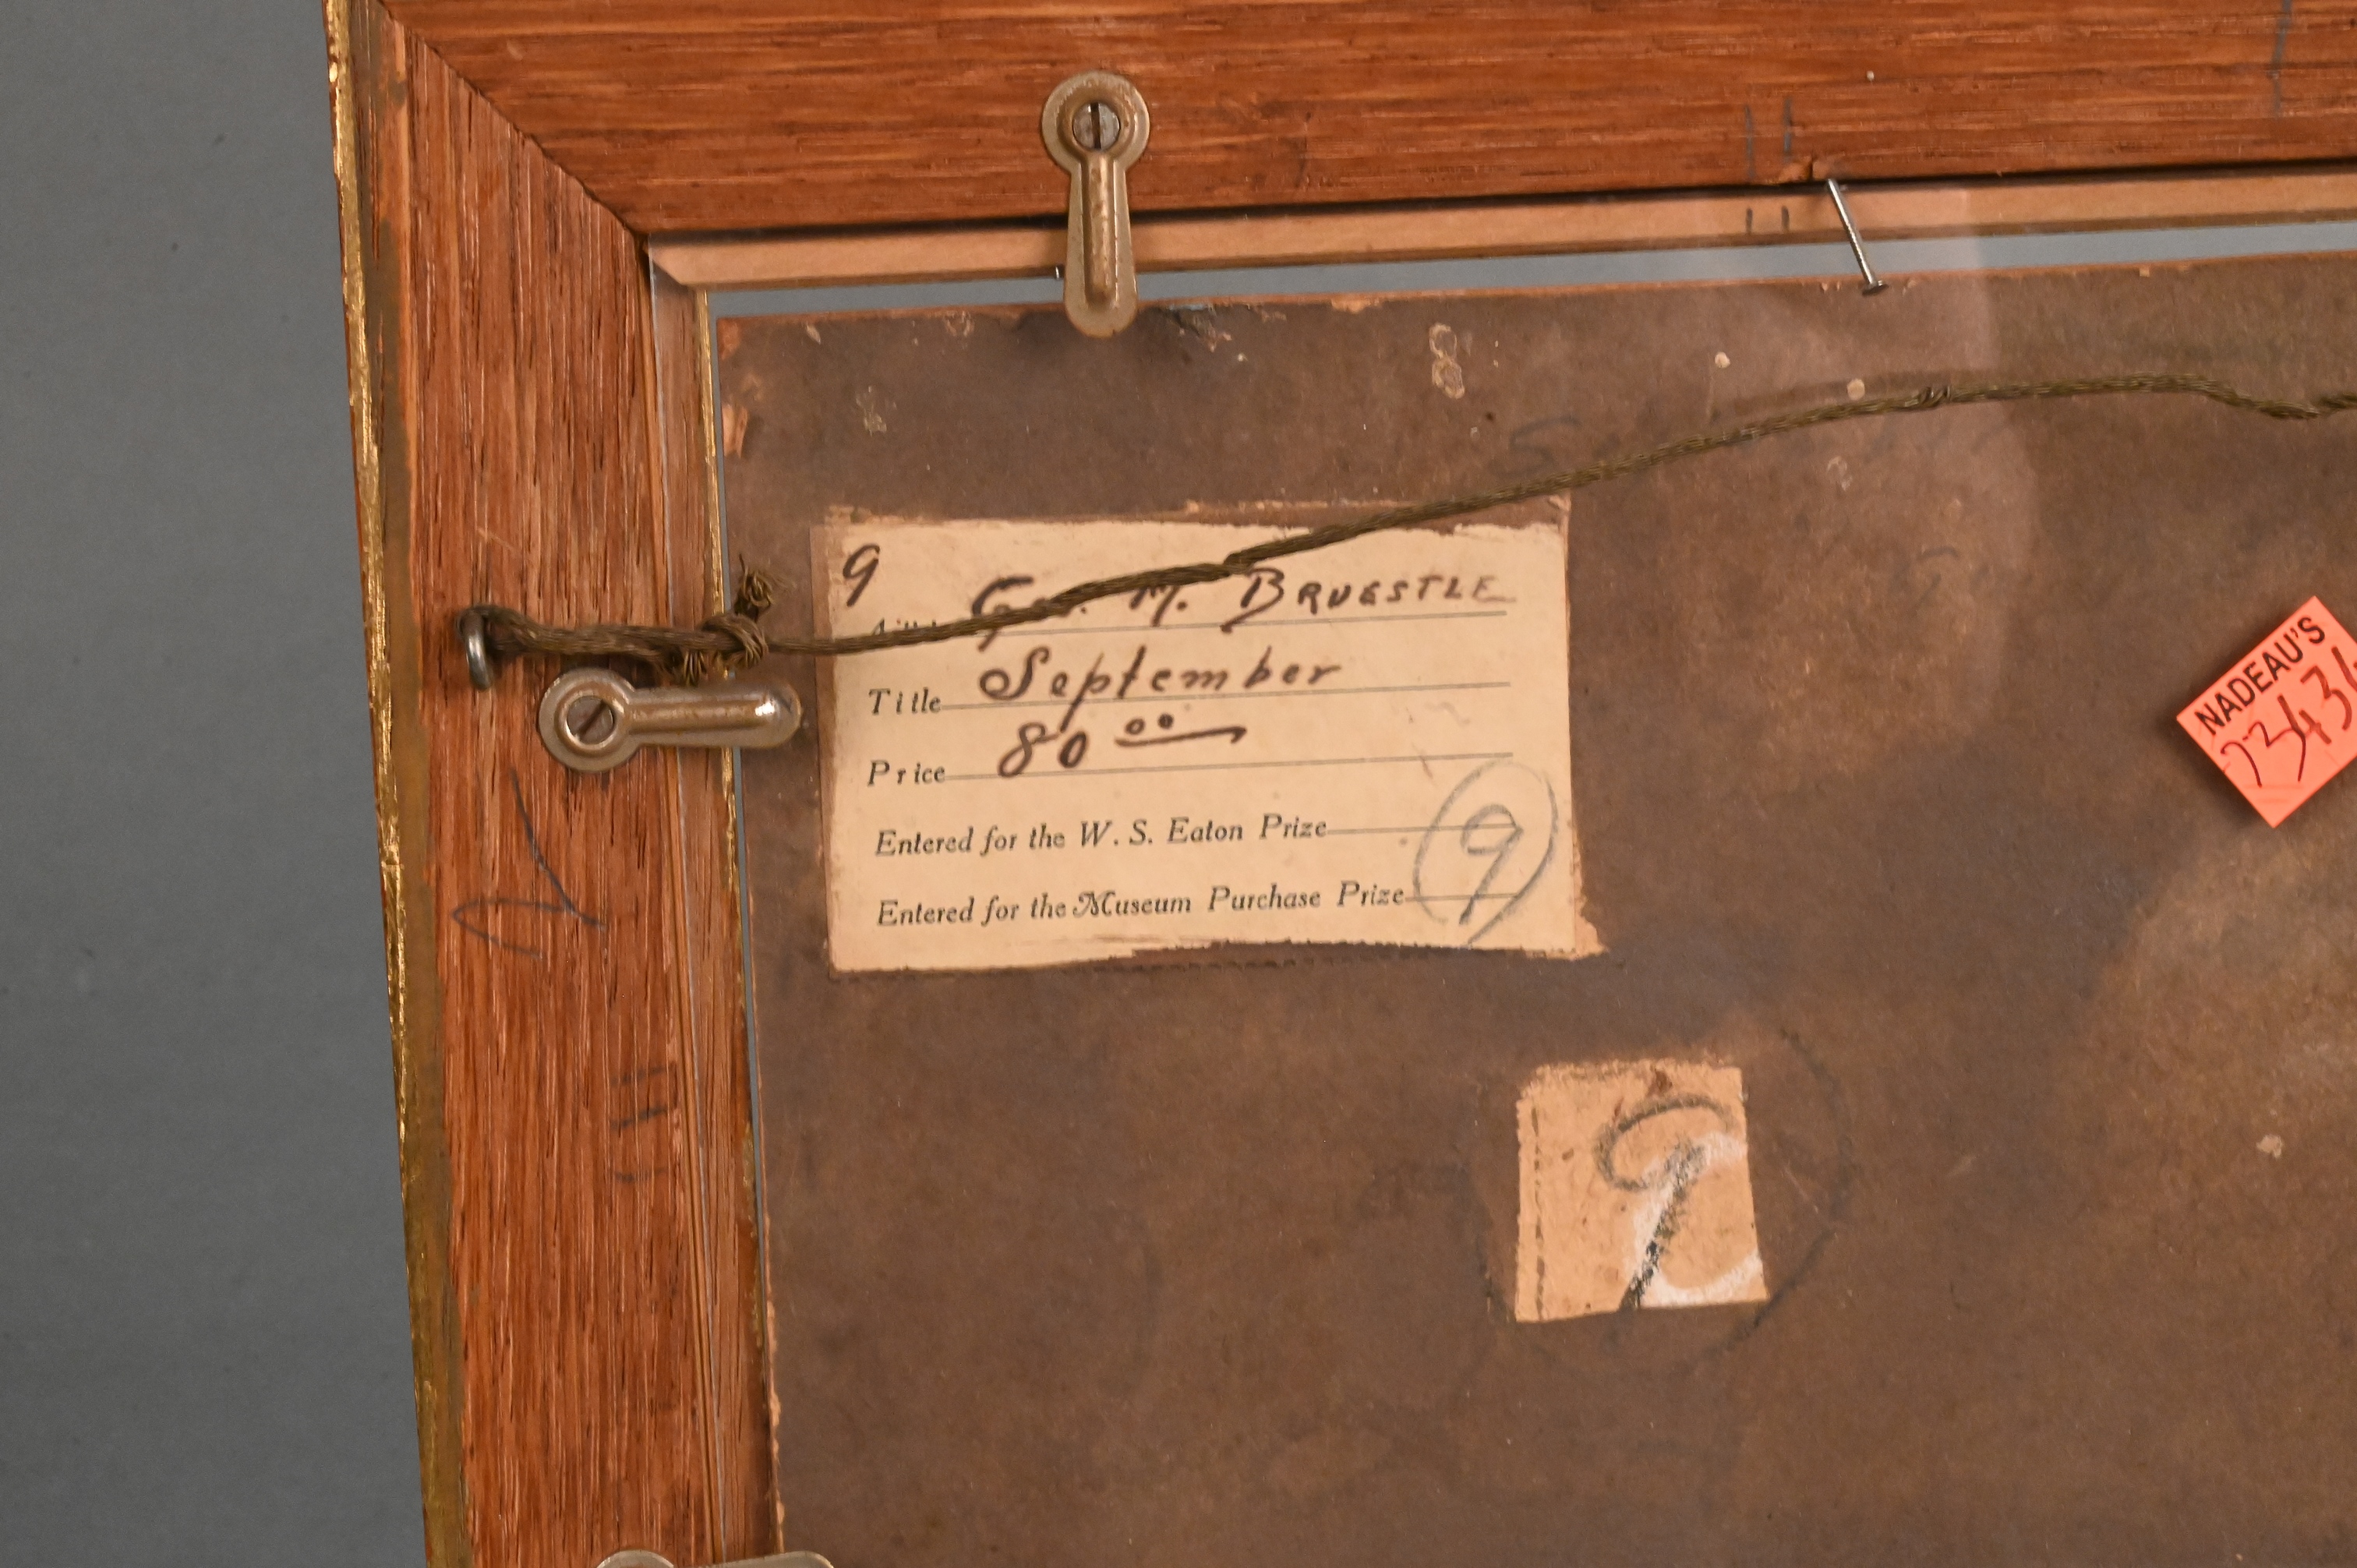 9
Geo. M. BRUESTLE
Title September
Price 80 00
Entered for the W. S. Eaton Prize
Entered for the Museum Purchase Prize
9
NADEAU'S
9